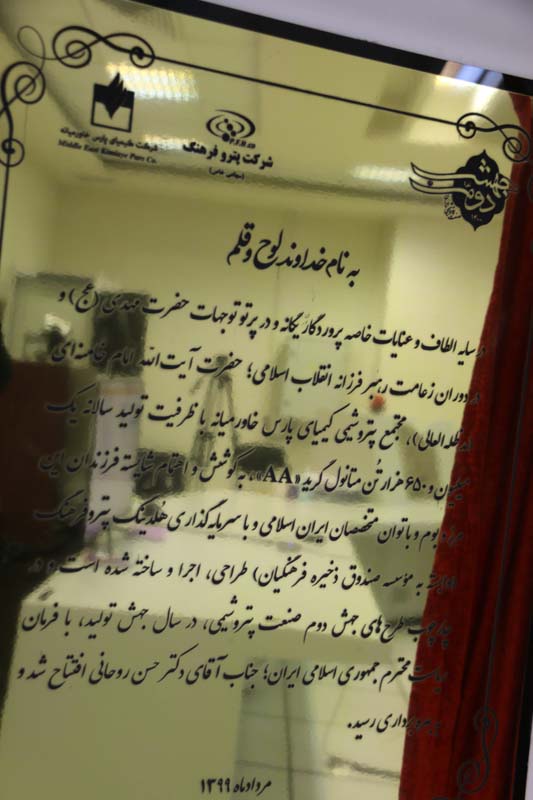 شرکت کیمیای پارس خاورمیانه
Middle East Kimiaye Pars Co.
P.F.H.CO
شرکت پترو فرهنگ
(سهامی خاص)
جهش دوم
به نام خداوند لوح و قلم
در سایه الطاف و عنایات خاصه پروردگار یگانه و در پرتو توجهات حضرت مهدی (عج) و
در دوران زعامت رهبر فرزانه انقلاب اسلامی؛ حضرت آیت‌الله امام خامنه‌ای
(مدظله‌العالی)، مجتمع پتروشیمی کیمیای پارس خاورمیانه با ظرفیت تولید سالانه یک
میلیون و ۶۵۰ هزار تُن متانول گرید «AA»، به کوشش و اهتمام شایسته فرزندان این
مرز و بوم و با توان متخصصان ایران اسلامی و با سرمایه‌گذاری هلدینگ پترو فرهنگ
(وابسته به مؤسسه صندوق ذخیره فرهنگیان) طراحی، اجرا و ساخته شده است و در
چارچوب طرح‌های جهش دوم صنعت پتروشیمی، در سال جهش تولید، با فرمان
ریاست محترم جمهوری اسلامی ایران؛ جناب آقای دکتر حسن روحانی افتتاح شد و
به بهره‌برداری رسید.
مرداد ماه ۱۳۹۹